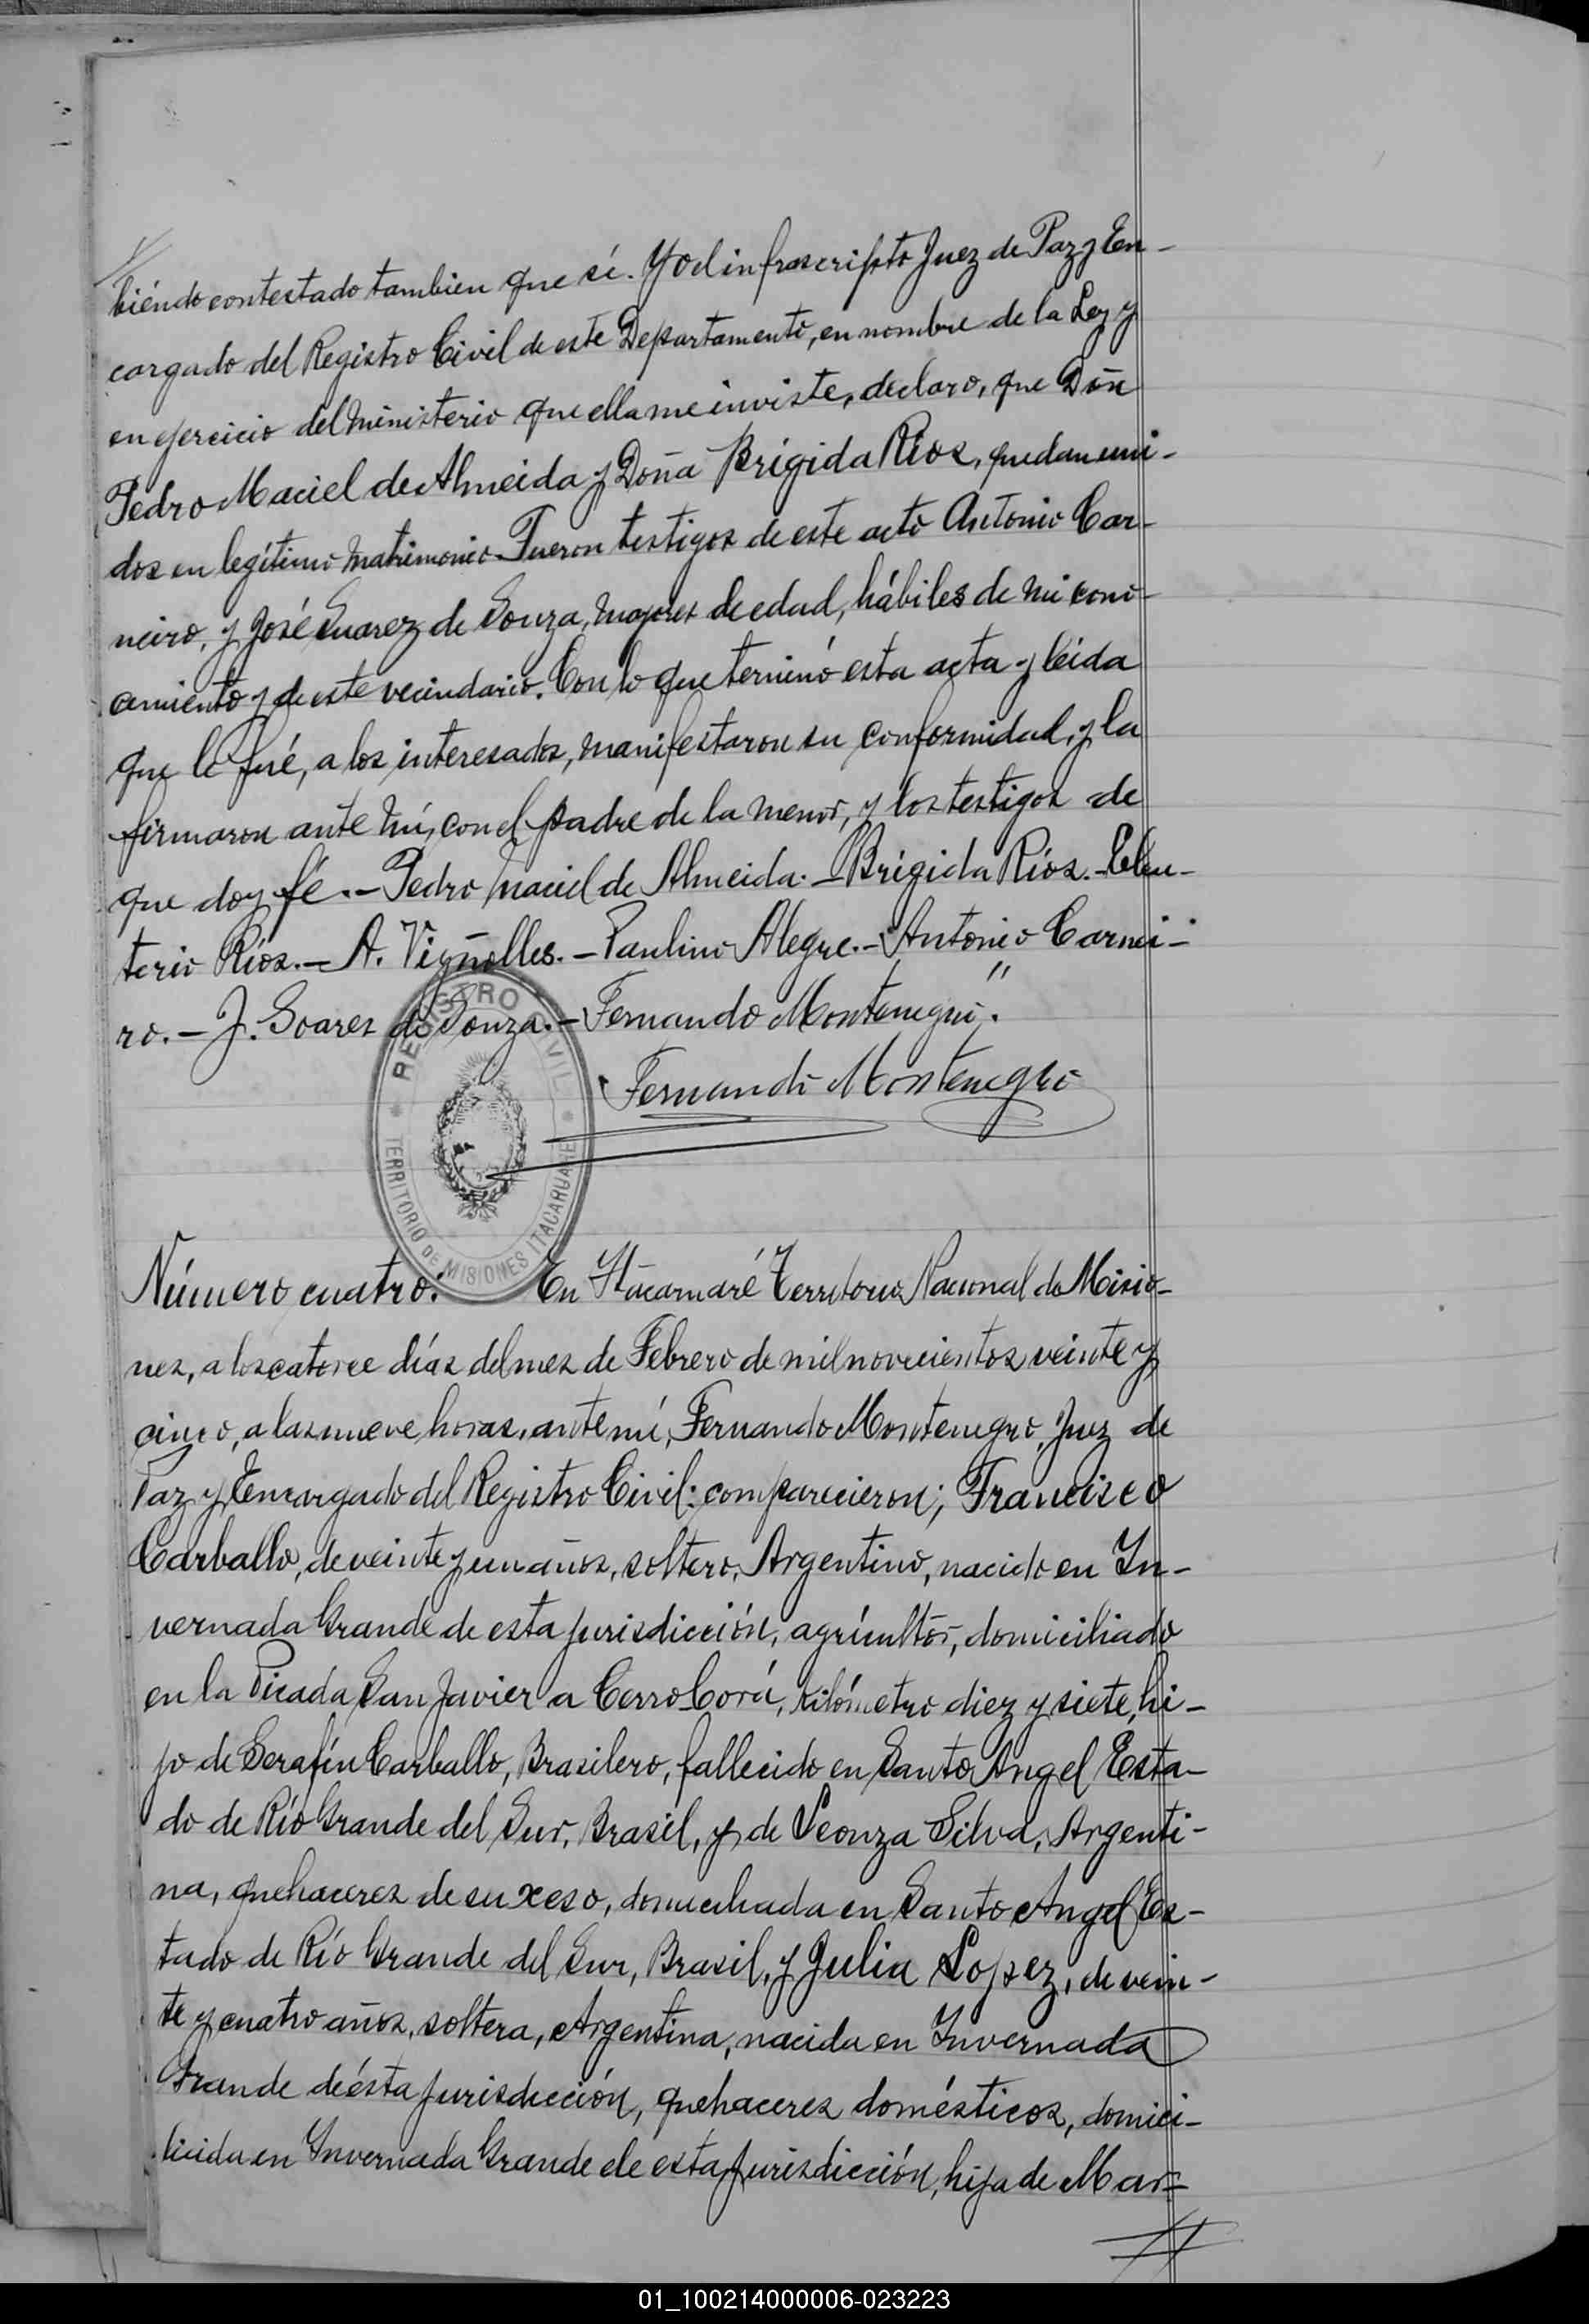 biéndo contestado tambien que sí. Yo el infrascripto Juez de Paz y En-
cargado del Registro Civil de este Departamento, en nombre de la Ley y
en ejercicio del ministerio que ella me inviste, declaro, que Don
Pedro Maciel de Almeida y Doña Brígida Ríos, quedan uni-
dos en legítimo matrimonio. Fueron testigos de este acto Antonio Car-
neiro, y José Suarez de Souza, mayores de edad, hábiles de mi cono-
cimiento y de este vecindario. Con lo que terminó esta acta y leida
que le fué, a los interesados, manifestaron su conformidad, y la
firmaron ante mí, con el padre de la menor, y los testigos de
que doy fé.- Pedro Maciel de Almeida.- Brígida Ríos.- Eleu-
terio Ríos.- A. Vignolles.- Paulino Alegre.- Antonio Carnei-
ro.- J. Soares de Souza.- Fernando Montenegro".
Fernando Montenegro
REGISTRO CIVIL
TERRITORIO DE MISIONES ITACARUARE
Número cuatro: En Itacaruaré Territorio Nacional de Misio-
nes, a los catorce días del mes de Febrero de mil novecientos veinte y
cinco, a las nueve horas, ante mí, Fernando Montenegro, Juez de
Paz y Encargado del Registro Civil: comparecieron; Francisco
Carballo, de veinte y un años, soltero, Argentino, nacido en In-
vernada Grande de esta jurisdicción, agricultor, domiciliado
en la Picada San Javier a Cerro Corá, kilómetro diez y siete, hi-
jo de Serafín Carballo, Brasilero, fallecido en Santo Angel Esta-
do de Río Grande del Sur, Brasil, y de Leonza Silva, Argenti-
na, quehaceres de su xeso, domiciliada en Santo Angel Es-
tado de Río Grande del Sur, Brasil, y Julia Lopez, de vein-
te y cuatro años, soltera, Argentina, nacida en Invernada
Grande de ésta jurisdicción, quehaceres domésticos, domici-
liada en Invernada Grande de esta jurisdicción, hija de Mar-
01_100214000006-023223